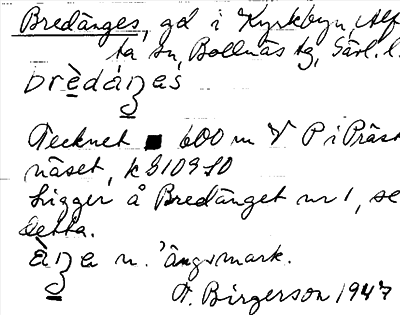 Bredänges, gd i Kyrkbyn, Alf
ta sn, Bollnäs tg, Gävl. l.
brèdáŋas
Tecknet ■ 600 m V P i Präst
näset, k S109 SO
Ligger å Bredänget nr 1, se
detta.
àŋa n. 'ängsmark.
F. Birgerson 1947